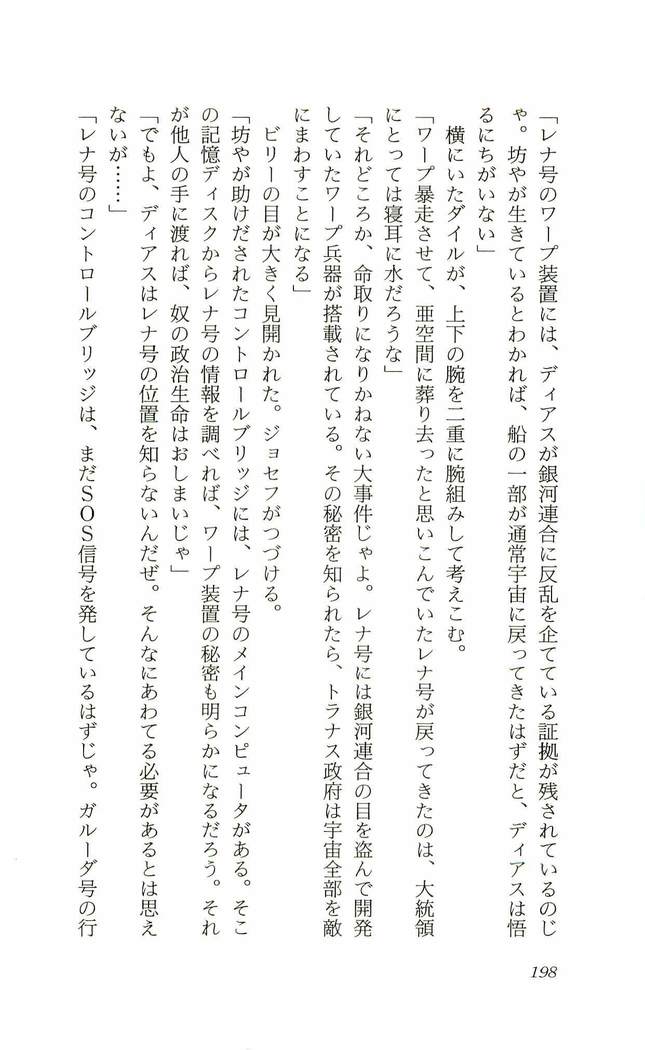 「レナ号のワープ装置には、ディアスが銀河連合に反乱を企てている証拠が残されているのじ
ゃ。坊やが生きているとわかれば、船の一部が通常宇宙に戻ってきたはずだと、ディアスは悟
るにちがいない」
横にいたダイルが、上下の腕を二重に腕組みして考えこむ。
「ワープ暴走させて、亜空間に葬り去ったと思いこんでいたレナ号が戻ってきたのは、大統領
にとっては寝耳に水だろうな」
「それどころか、命取りになりかねない大事件じゃよ。レナ号には銀河連合の目を盗んで開発
していたワープ兵器が搭載されている。その秘密を知られたら、トラナス政府は宇宙全部を敵
にまわすことになる」
ビリーの目が大きく見開かれた。ジョセフがつづける。
「坊やが助けだされたコントロールブリッジには、レナ号のメインコンピュータがある。そこ
の記憶ディスクからレナ号の情報を調べれば、ワープ装置の秘密も明らかになるだろう。それ
が他人の手に渡れば、奴の政治生命はおしまいじゃ」
「でもよ、ディアスはレナ号の位置を知らないんだぜ。そんなにあわてる必要があるとは思え
ないが……」
「レナ号のコントロールブリッジは、まだSOS信号を発しているはずじゃ。ガルーダ号の行
198